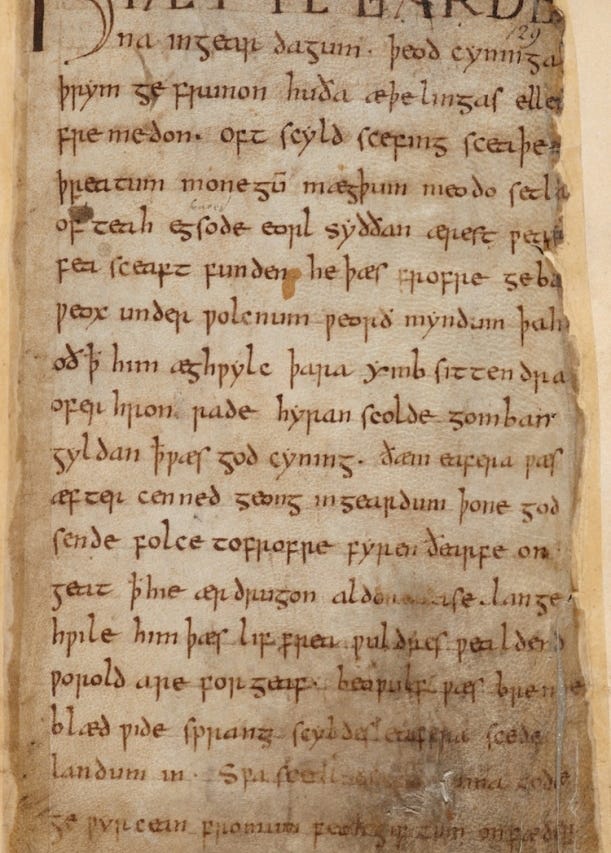 ǷE GARDE
129
na ingear dagum. þeod cyninga
þrym ge frunon huða æþelingas elle
fre medon. oft scyld scefing sceaþe
þreatum monegū mægþum meodo setla
of teah egsode eorl syððan ærest ƿear
fea sceaft funden he þæs frofre geba
ƿeox under ƿolcnum ƿeorð myndum þah
oð ꝥ him æghƿylc þara ymb sittendra
ofer hron rade hyran scolde gomban
gyldan ꝥ ƿæs god cyning. ðæm eafera ƿæs
æfter cenned geong ingeardum þone god
sende folce tofrofre fyren ðearfe on
geat ꝥ hie ær drugon aldor ase. lange
hƿile him þæs lif frea ƿuldres ƿealdend
ƿorold are for geaf. beoƿulf ƿæs breme
blæd ƿide sprang scyldes eafera scede
landum in. Sƿa sceal uma gode
ge ƿyrcean fromum feoh giftum on fæder